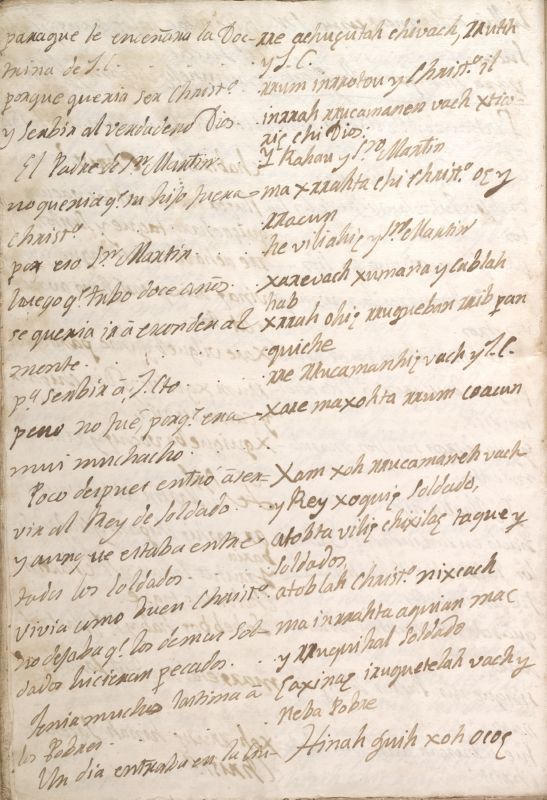 paraque le enceñara la Doc-
trina de J.C.
porque queria ser Christº.
y serbir al verdadero Dios.
El Padre de Sn. Martin
no queria qe. su hijo fuera
Christº.
por eso Sn. Martin
luego qe. tubo doce años.
se queria ir â esconder al
monte.
pa. serbir â J.Cto.
pero no fue porqe. era
mui muchacho.
Poco despues entrô â ser-
vir al Rey de Soldado.
y aunque estaba entre
todos los Soldados.
vivia como buen Christº.
no dejaba qe. los demas Sol-
dados hicieran pecados.
Tenia mucha lastima â
los Pobres.
Un dia entraba en la
re achuçutah chivach,
y J.C.
rrum inrrotou y Christº. il
inrrah rrucamaneh vach
chi Dios.
y Kahau y Sto. Martin
ma xrrahta chi Christº. oç y
rracun
he viliahiç y Sn. Martin
xarevach xumaña y cablah
hab
xrrah ohiç rruqueban rrib pan
quiche
re rrucamanhiç vach y J.C.
xare maxohta rrum coacun
Xam xoh rrucamaneh vach
y Rey xoquiç Soldado,
atobta viliç chixilaç taque y
Soldados,
atoblah Christº. nixcach
ma inrrahta aquian mac
y rruquihal Soldado
çaxinaç iruquetelah vach y
Neba Pobre
Hinah quih xoh ocoç